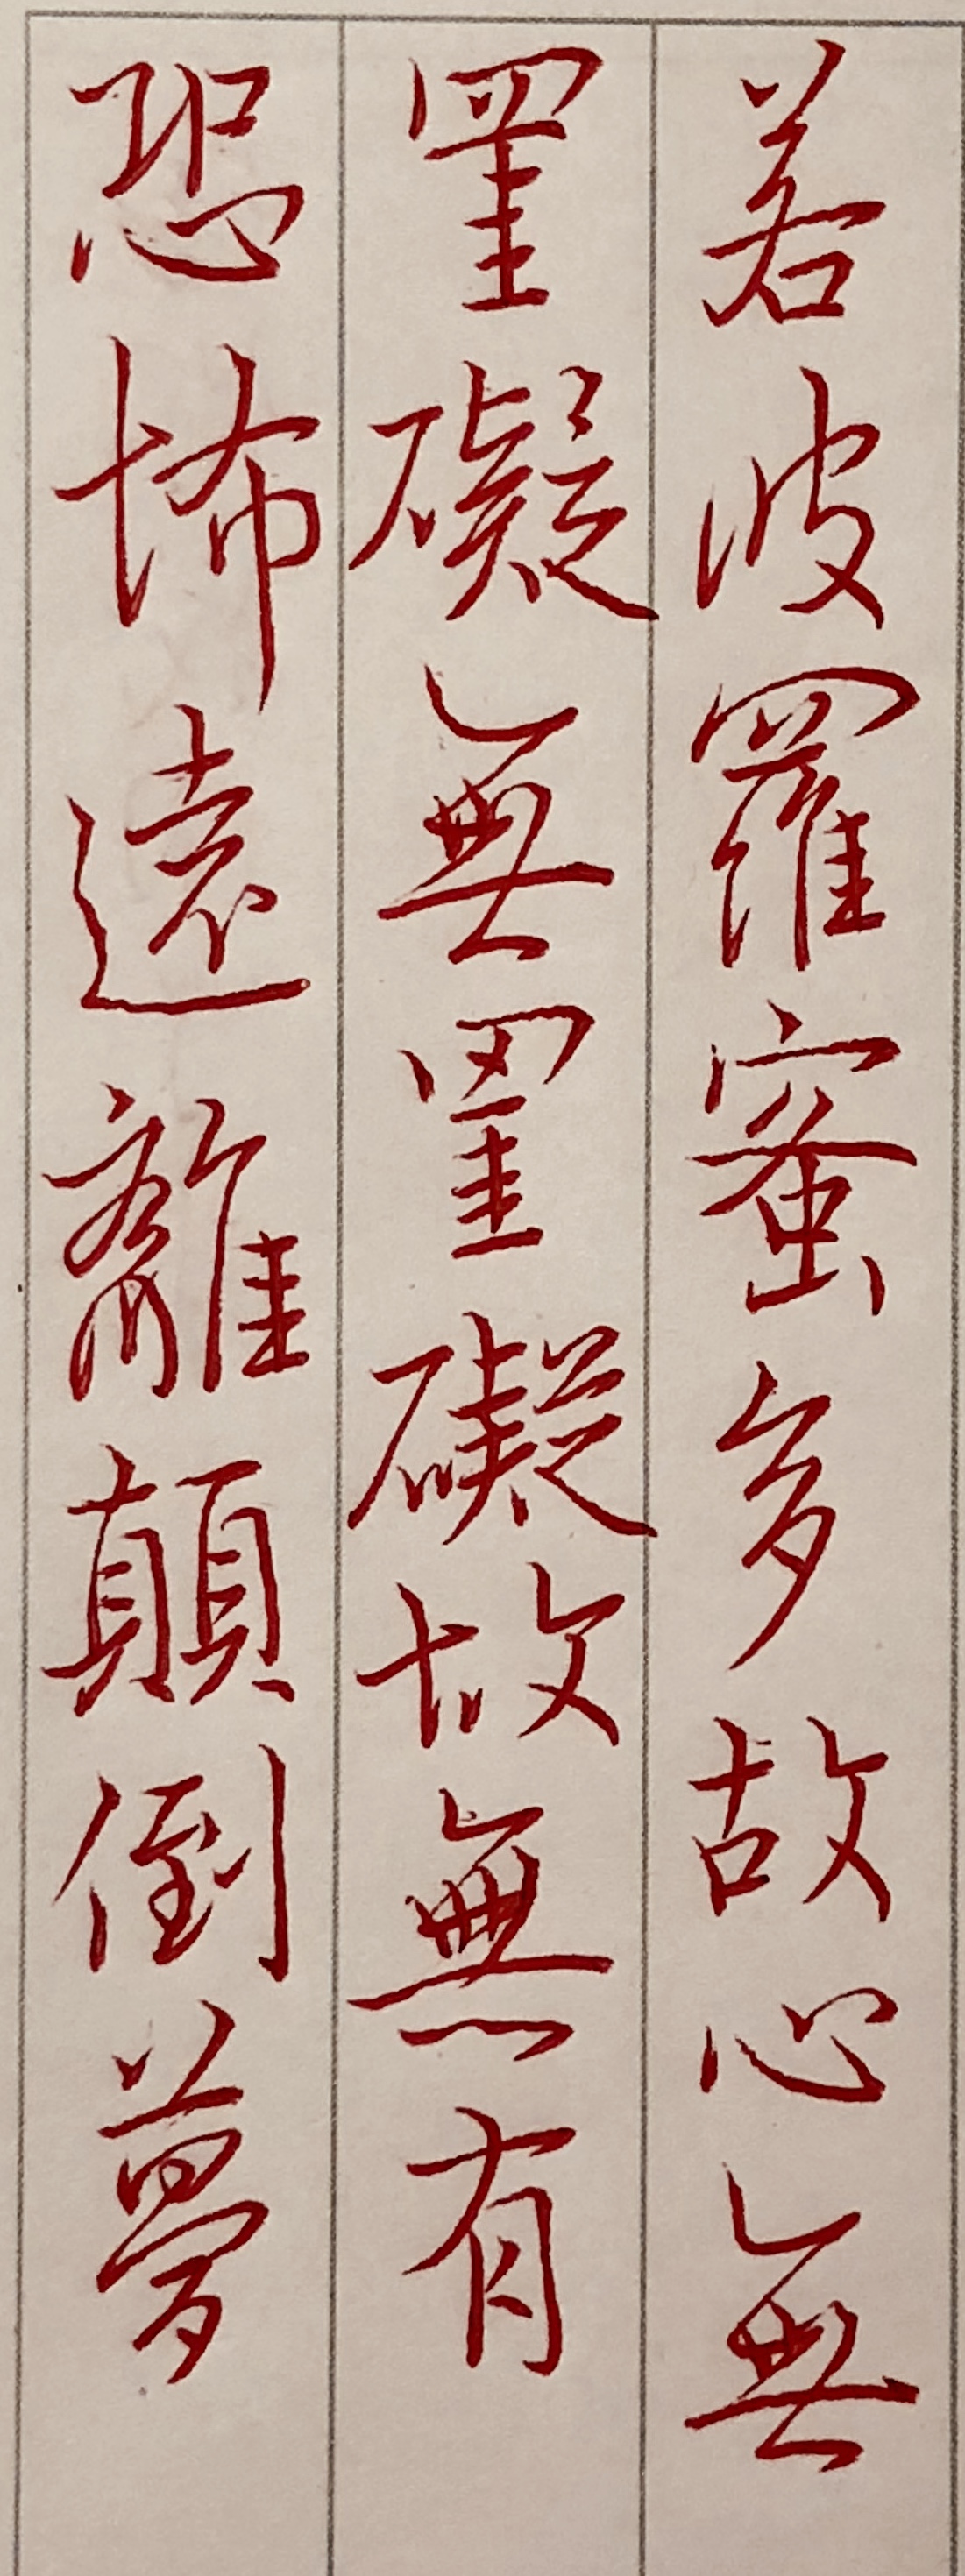 若波羅蜜多故心無
罣礙無罣礙故無有
恐怖遠離顛倒夢